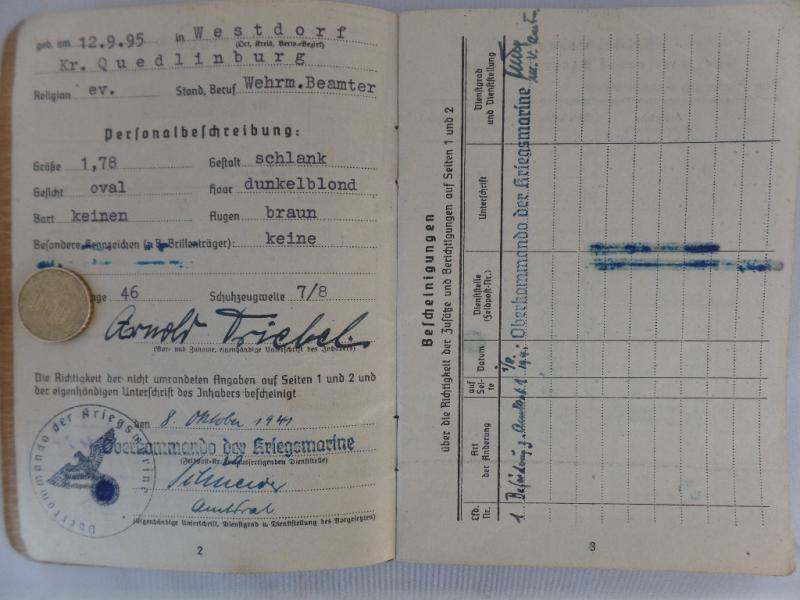 geb. am 12.9.95 in Westdorf
(Ort, Kreis, Verw.-Bezirk)
Kr. Quedlinburg
Religion ev. Stand, Beruf Wehrm.Beamter
Personalbeschreibung:
Größe 1,78 Gestalt schlank
Gesicht oval Haar dunkelblond
Bart keinen Augen braun
Besondere Kennzeichen (z.B. Brillenträger): keine
46 Schuhzeugweite 7/8
Arnold Triebel
(Vor- und Zuname, eigenhändige Unterschrift des Inhabers)
Die Richtigkeit der nicht umrandeten Angaben auf Seiten 1 und 2 und
der eigenhändigen Unterschrift des Inhabers bescheinigt
den 8. Oktober 1941
Oberkommando der Kriegsmarine
(Feldpost-Nr. ausfertigenden Dienststelle)
Amtsrat
(Eigenhändige Unterschrift, Dienstgrad u. Dienststellung des Vorgesetzten)
Oberkommando der Kriegsmarine
2
Bescheinigungen
über die Richtigkeit der Zusätze und Berichtigungen auf Seiten 1 und 2
Lfd. Nr.
Art der Änderung
auf Seite
Datum
Dienststelle (Feldpost-Nr.)
Unterschrift
Dienstgrad und Dienststellung
1 Beförderung z. Amtsrat 1 Oberkommando der Kriegsmarine
3